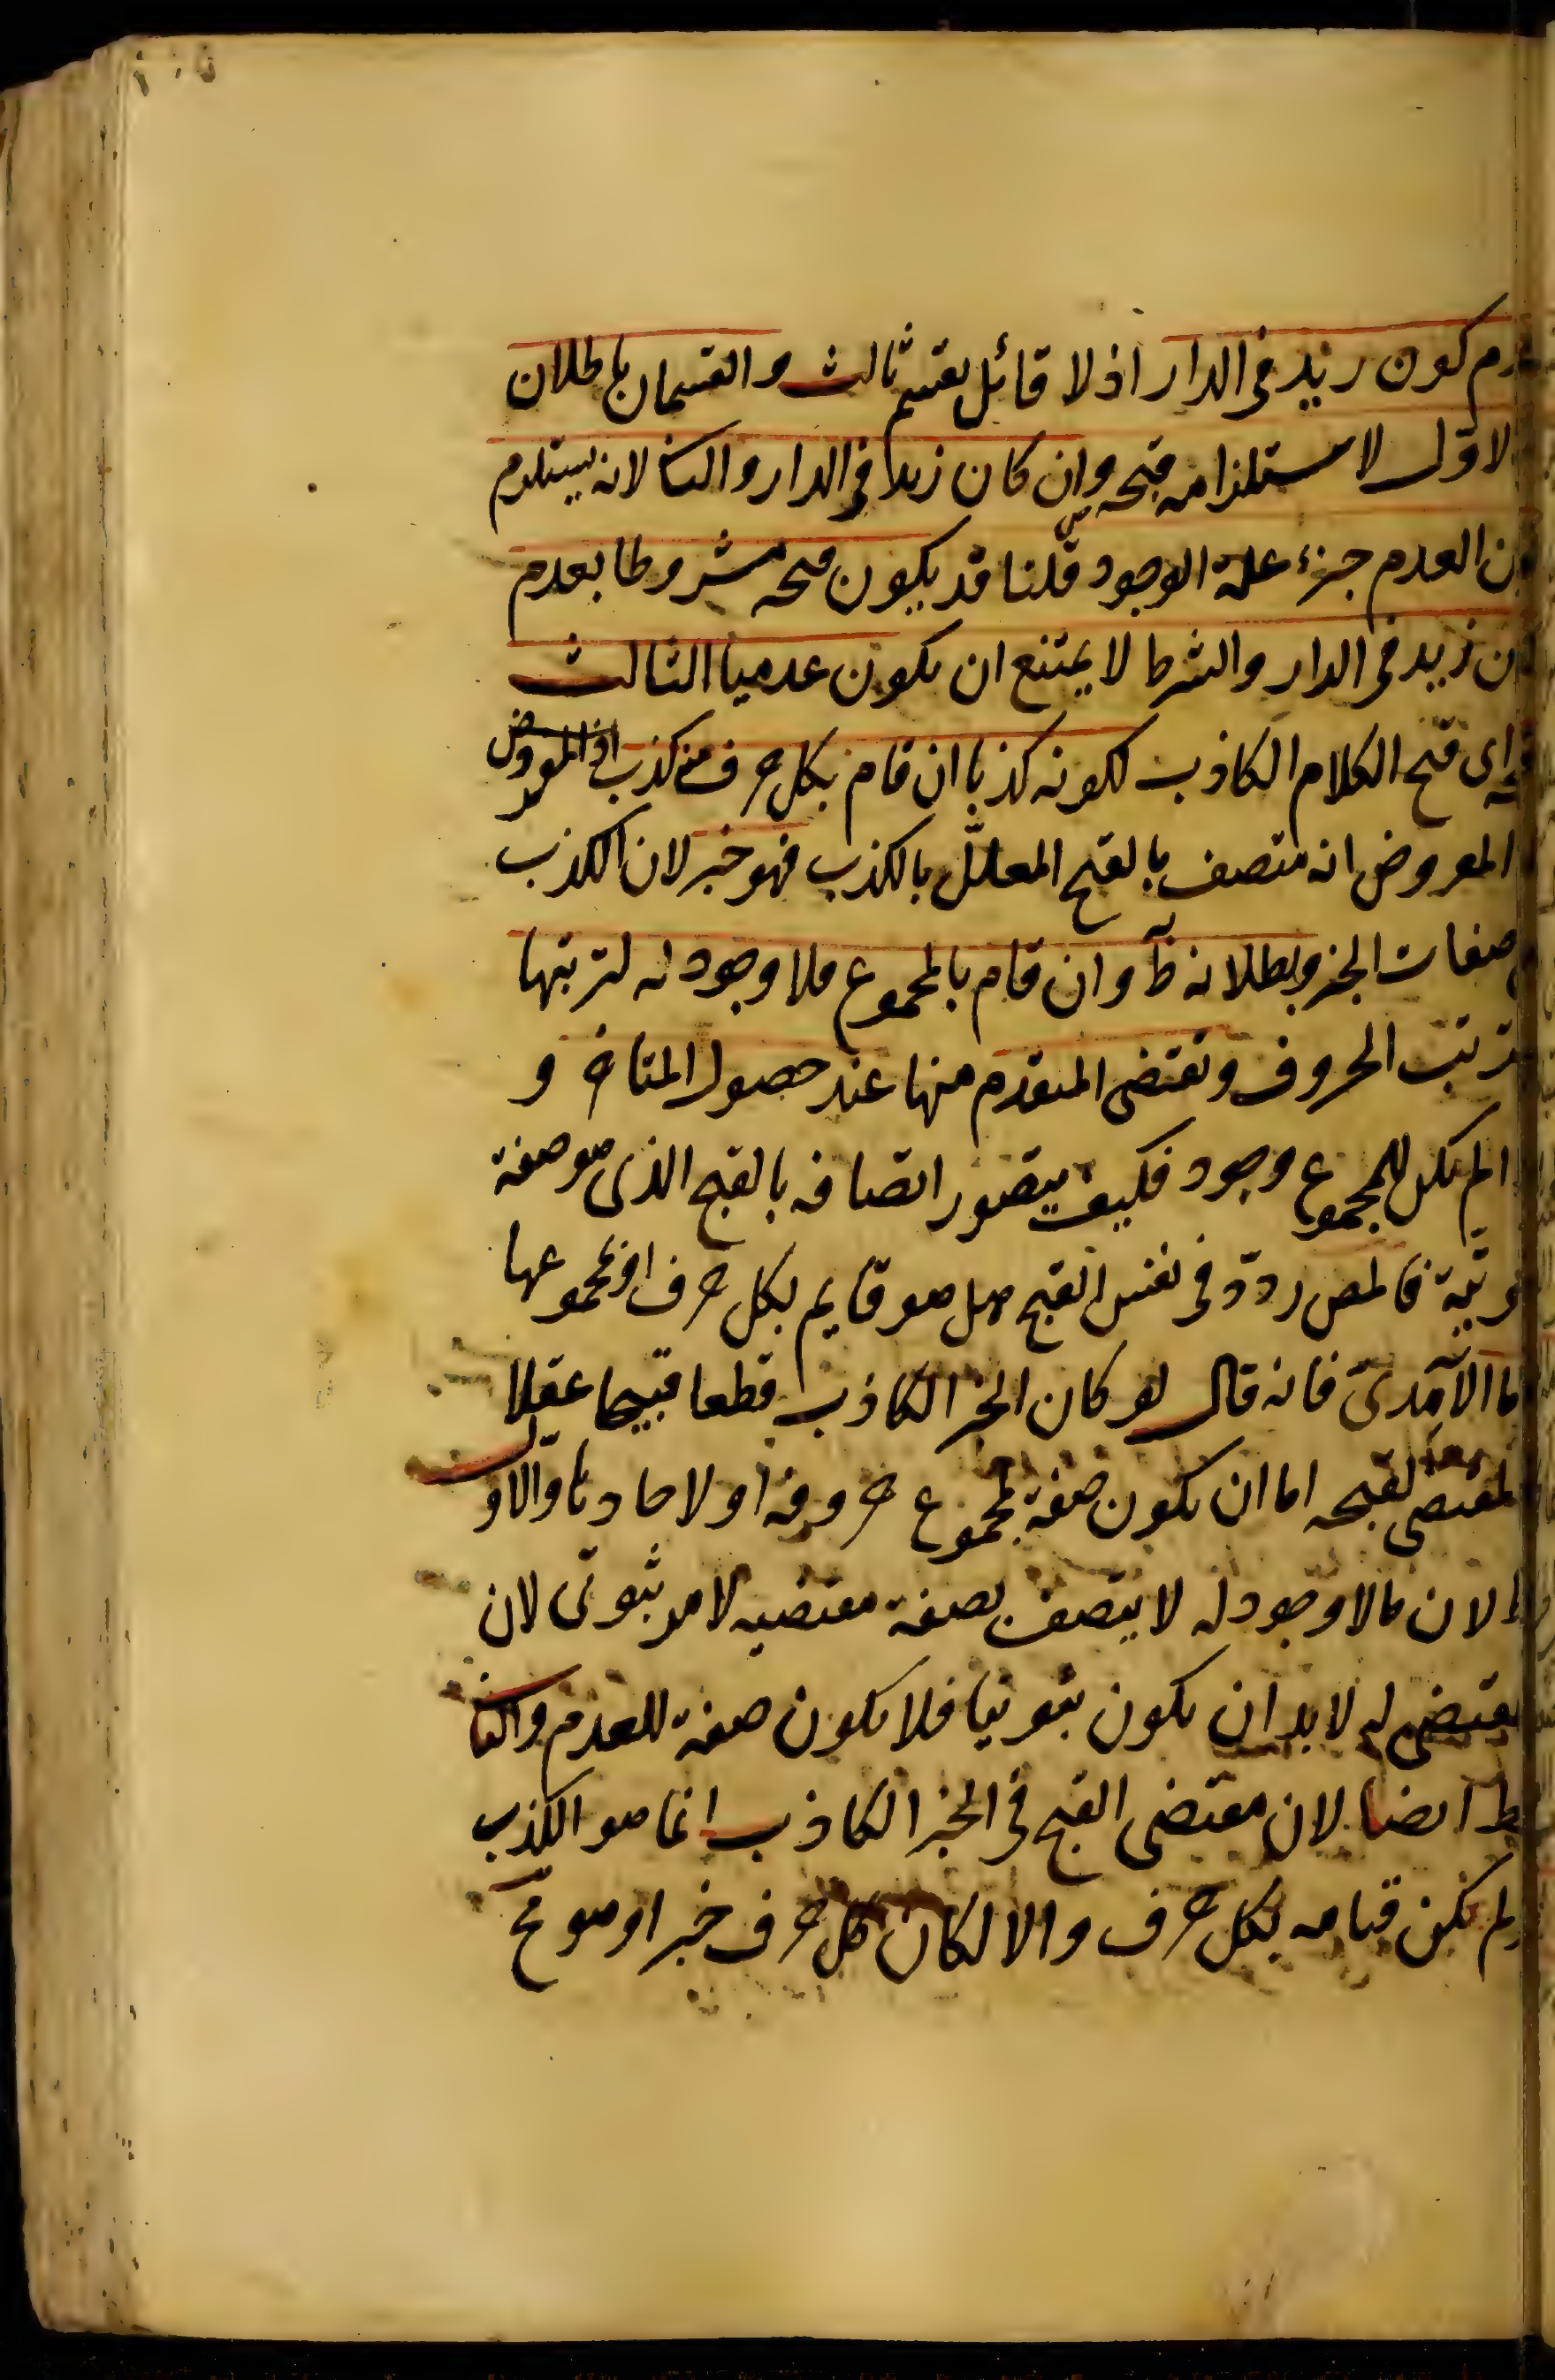 كون زيد فى الدار اذ لا قائل بقسم ثالث والقسمان باطلان
الاوّل لاستلزامه قبحه وان كان زيد فى الدار والثا لانه يستلزم
العدم جزء علة الوجود قلنا قد يكون قبحه مشروطا بعدم
زيد فى الدار والشرط لا يمتنع ان يكون عدميا الثالث
اى قبح الكلام الكاذب لكونه كذبا ان قام بكل حرف منه كذب اذ المفروض
المفروض انه متصف بالقبح المعلّل بالكذب فهو خبر لان الكذب
صفات الخبر وبطلانه ظ وان قام بالمجموع فلا وجود له لترتبها
ترتب الحروف وتقضى المتقدم منها عند حصول المتاخر و
لم يكن للمجموع وجود فكيف يتصور اتصافه بالقبح الذى هو صفة
ثبوتية فالمص ردّد فى نفس القبح هل هو قايم بكل حرف او بمجموعها
اما الآمدى فانه قال لو كان الخبر الكاذب قطعا قبيحا عقلا
المقتضى لقبحه اما ان يكون صفة لمجموع حروفه او لاحادها والاول
لان مالا وجود له لا يتصف بصفة مقتضيه لامر ثبوتى لان
المقتضى له لابد ان يكون ثبوتيا فلا يكون صفة للعدم والثا
ايضا لان مقتضى القبح فى الخبر الكاذب انما هو الكذب
لم يكن قيامه بكل حرف والا لكان كل حرف خبرا وهو مح